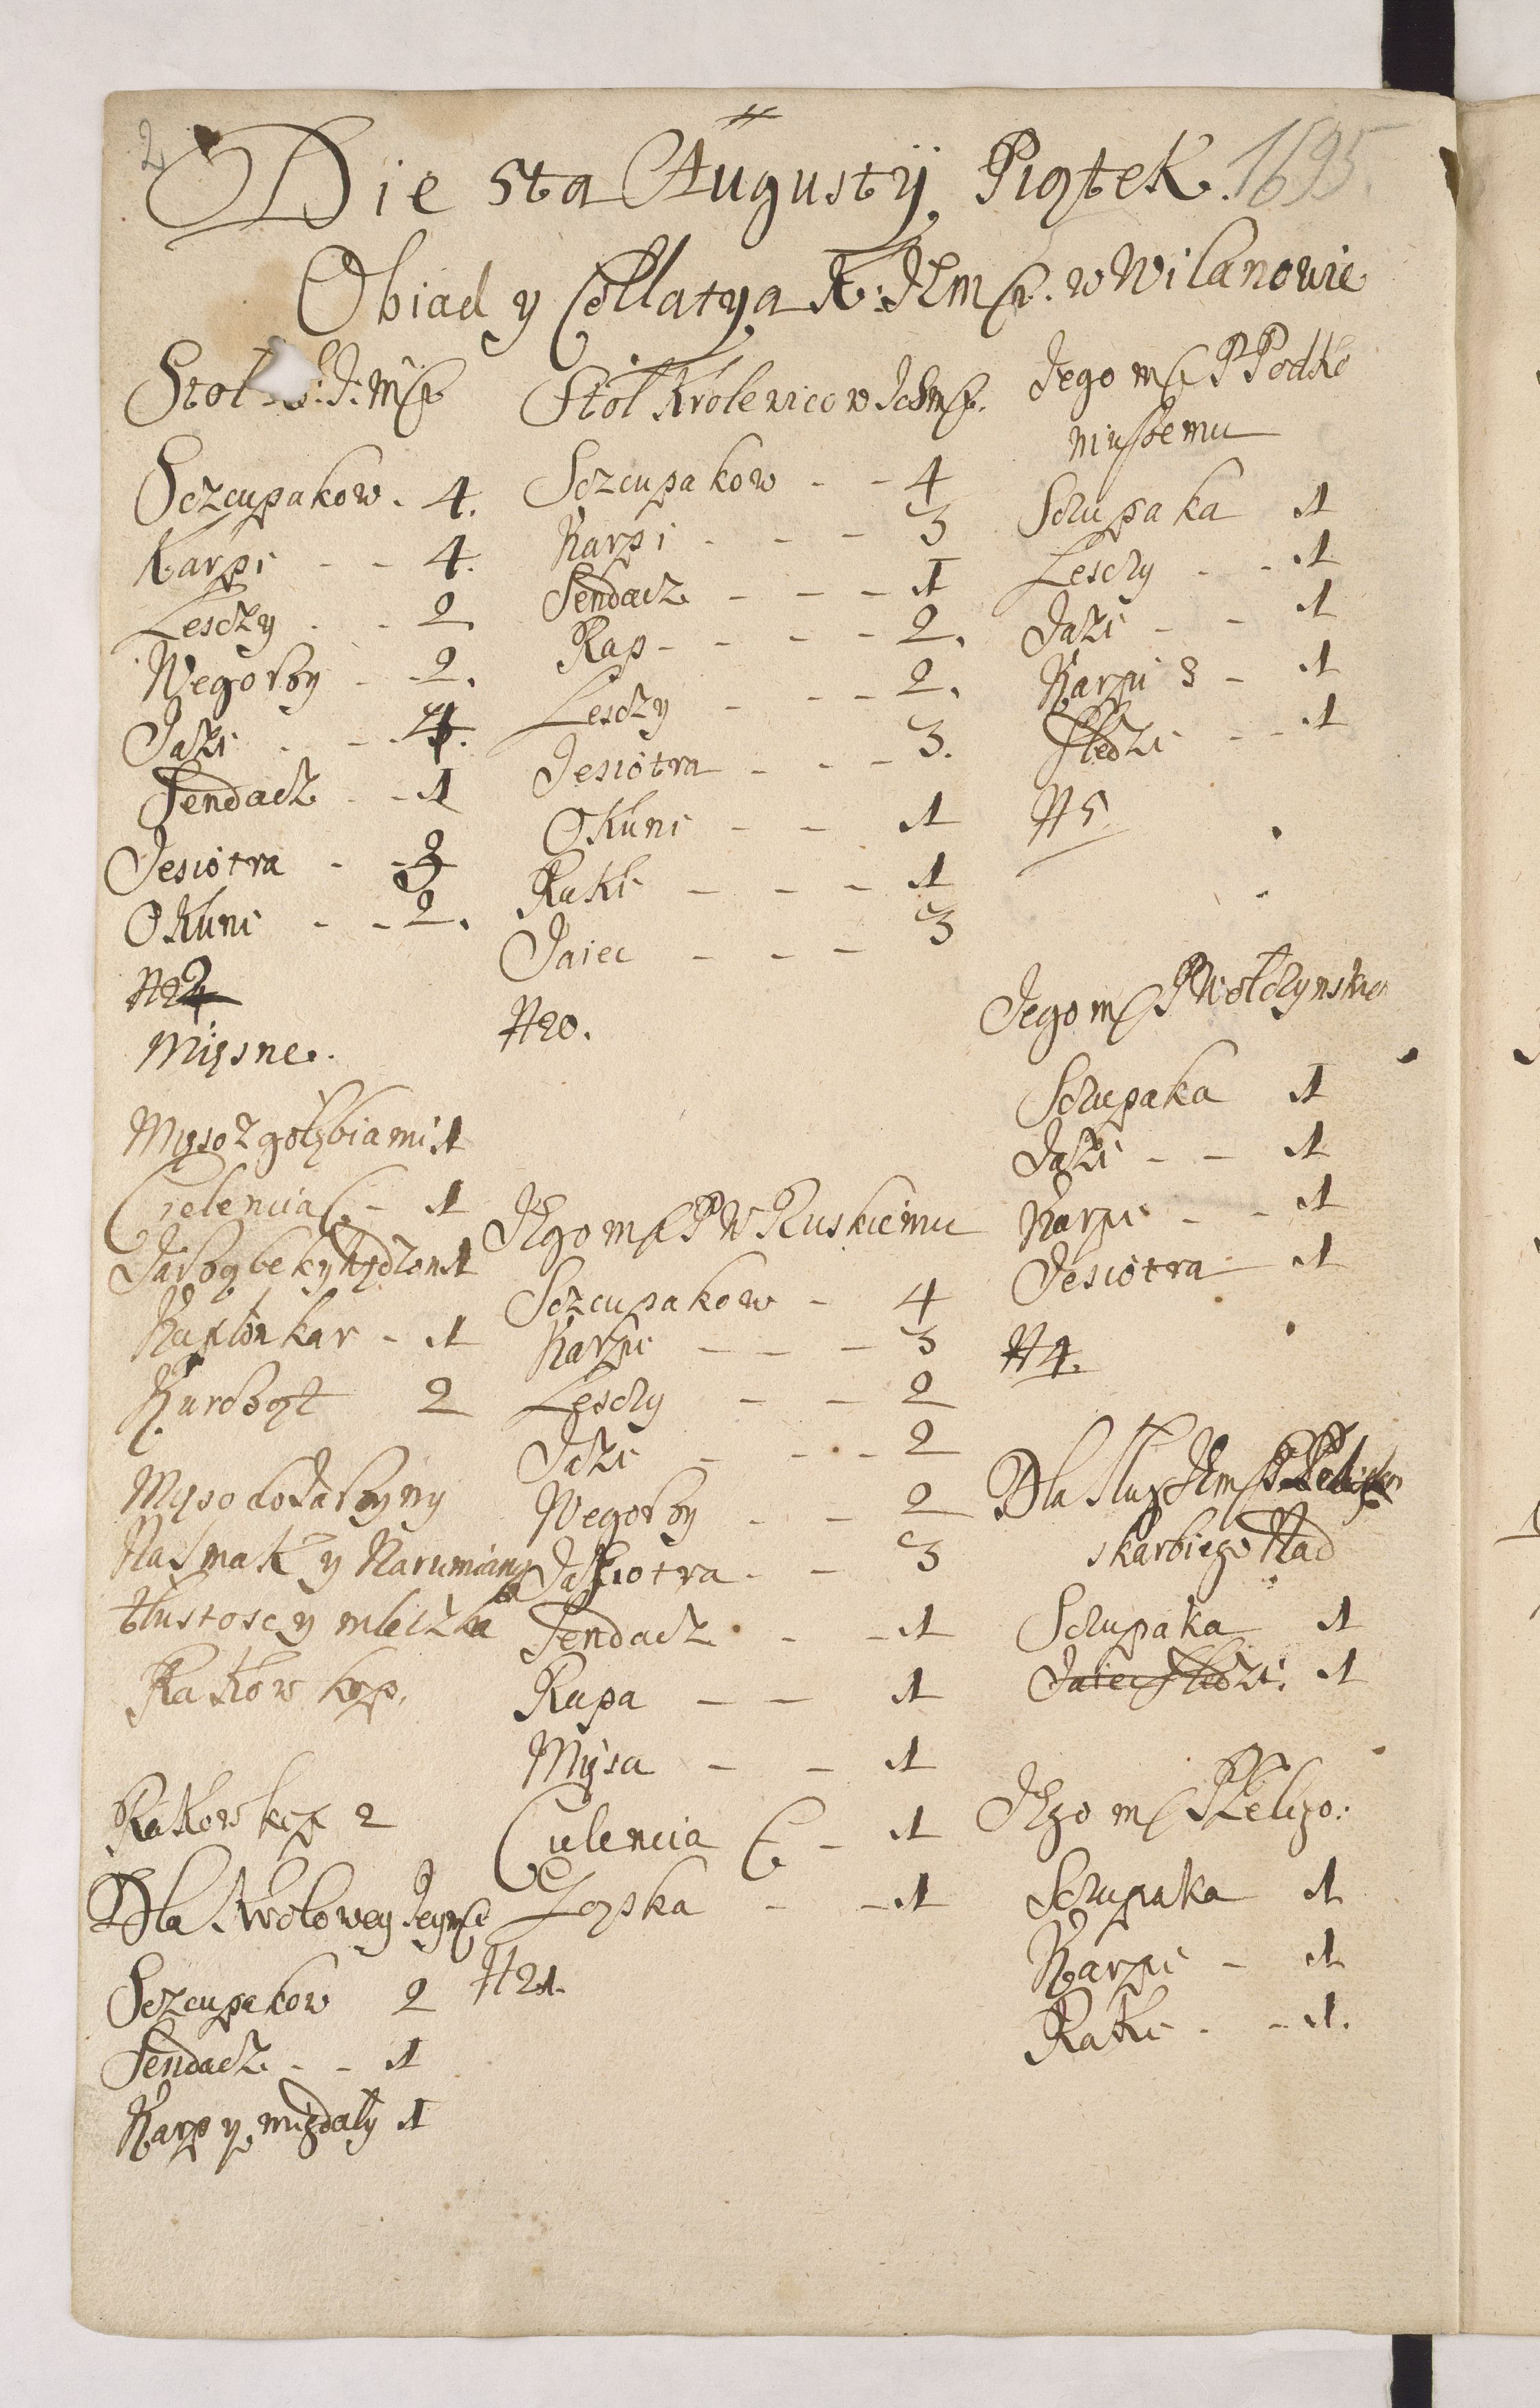 2
Die 5ta Augustij Piątek. 1695
Obiad y Collatya K: JEmsci. w Wilanowie
Stoł J: Msci
Sczcupakow. 4.
Karpi - - 4.
Lesczy - - 2.
Węgorzy - - 2.
Jazi - - 4.
Sendacz - - 1
Jesiotra - - 3
Okuni - - 2.
Mięsne.
Mięso z gołębiami 1
Cielencia C. - 1
Kapłonkar - 1
Kurcząt 2
Mięso do Jarzyny
Na Smak y Narumiany
tłustosc y mleczka
Rakow kop.
Rakow kop 2
Dla Krolowey Jeymsci
Sczcupakow 2
Sendacz - - 1
Karp y migdały 1
Stoł Krolewicow JchMsci.
Sczcupakow - - 4
Karpi - - - 3
Sendacz - - - 1
Rap - - - - 2.
Lesczy - - - 2.
Jesiotra - - - 3.
Okuni - - 1
Raki - - - 1
Jaiec - - - 3
N 20.
JEgomsci P W Ruskiemu
Sczcupakow - 4
Karpi - - - 3
Lesczy - - 2
Jazi - - - 2
Węgorzy - - 2
Jesiotra - - 3
Sendacz - - 1
Rapa - - 1
Mięsa - - 1
Cielencia C - 1
Zopska - - 1
N 21.
Jegomsci P Podko
niuszemu
Sczupaka 1
Lesczy - - 1
Jazi - - 1
Karpi 3 - 1
Sledzi - - 1
N 5
Jegomsci P Wołczynskie
Sczupaka 1
Jazi - - 1
Karpi - - 1
Jesiotra 1
N 4.
Dla Sług JEmsci P
skarbiego Nad
Sczupaka 1
Jaiec Sledzi. 1
JEgo msci P Zeligo:
Sczupaka 1
Karpi - 1
Raki - - 1.